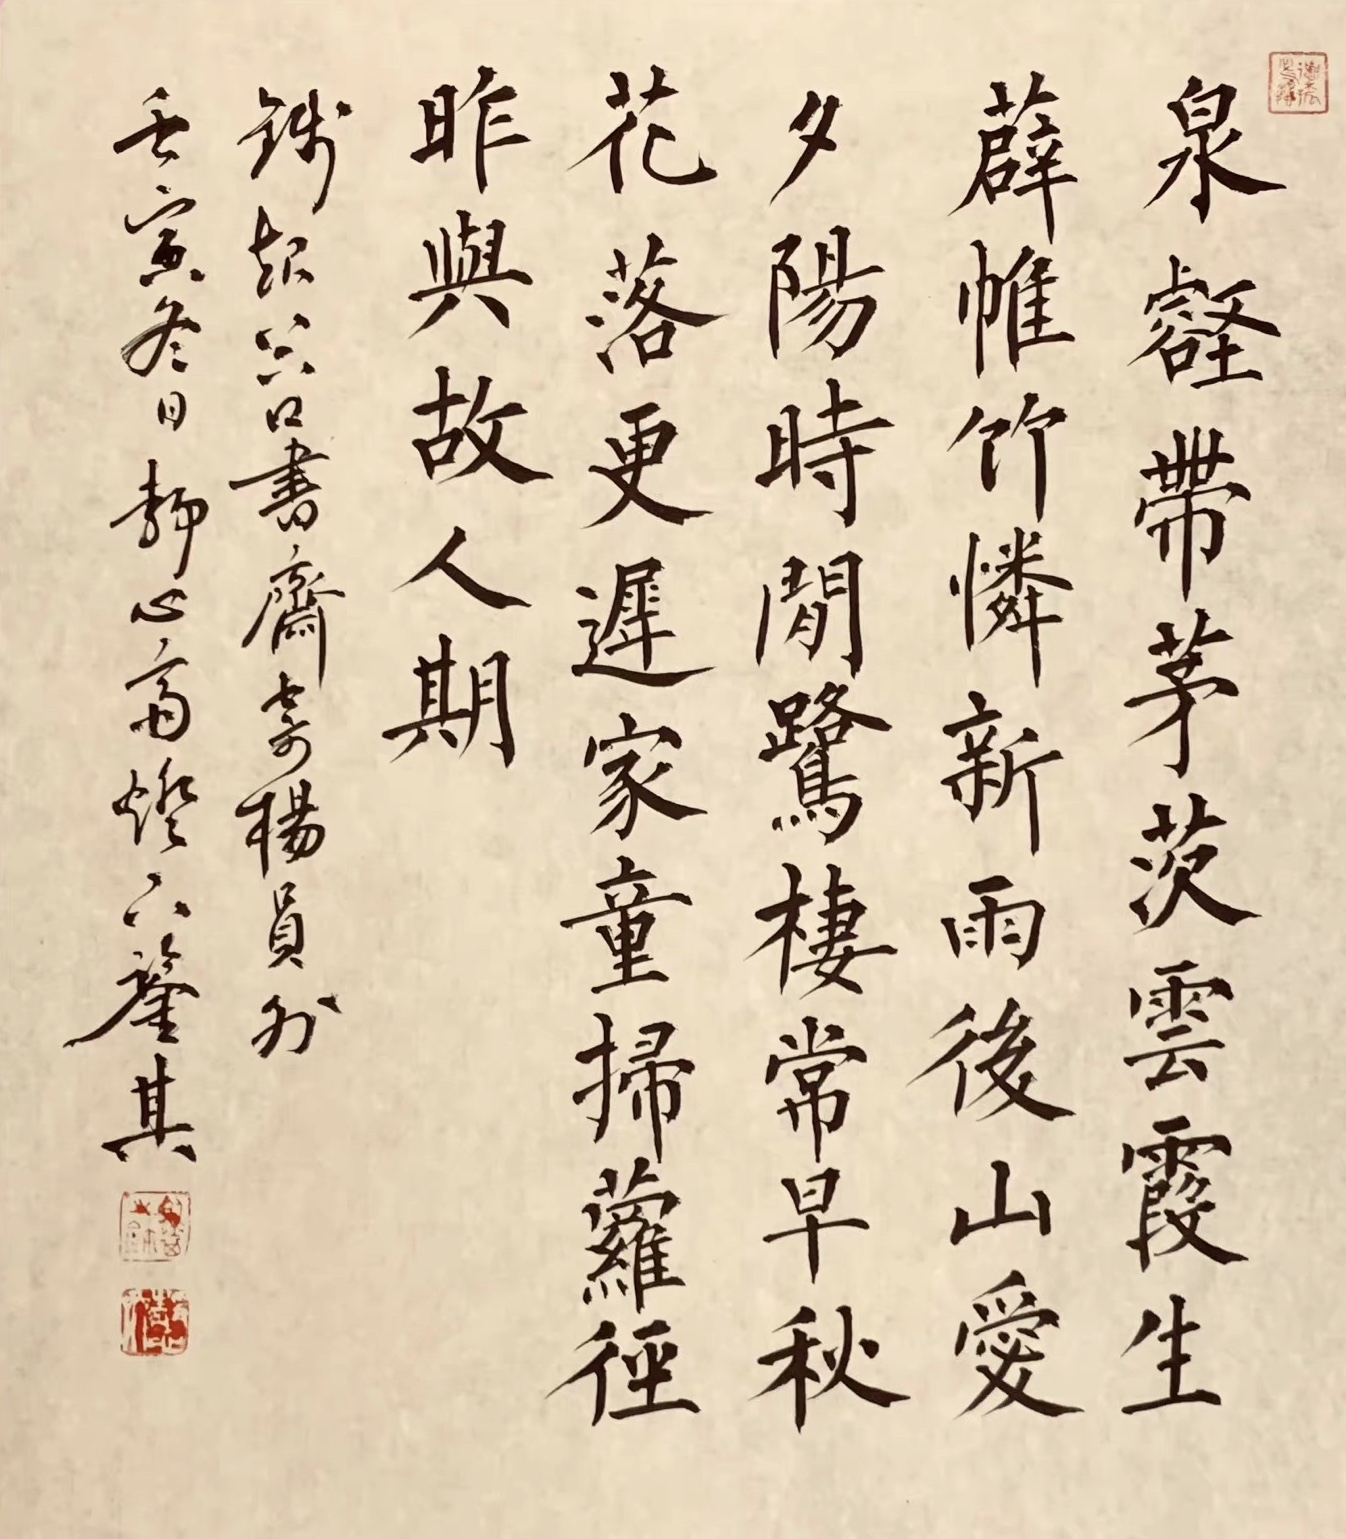 泉壑帶茅茨雲霞生
薜帷竹憐新雨後山愛
夕陽時閒鷺棲常早秋
花落更遲家童掃蘿徑
昨與故人期
錢起谷口書齋寄楊員外
壬寅冬日靜心齋燈下其